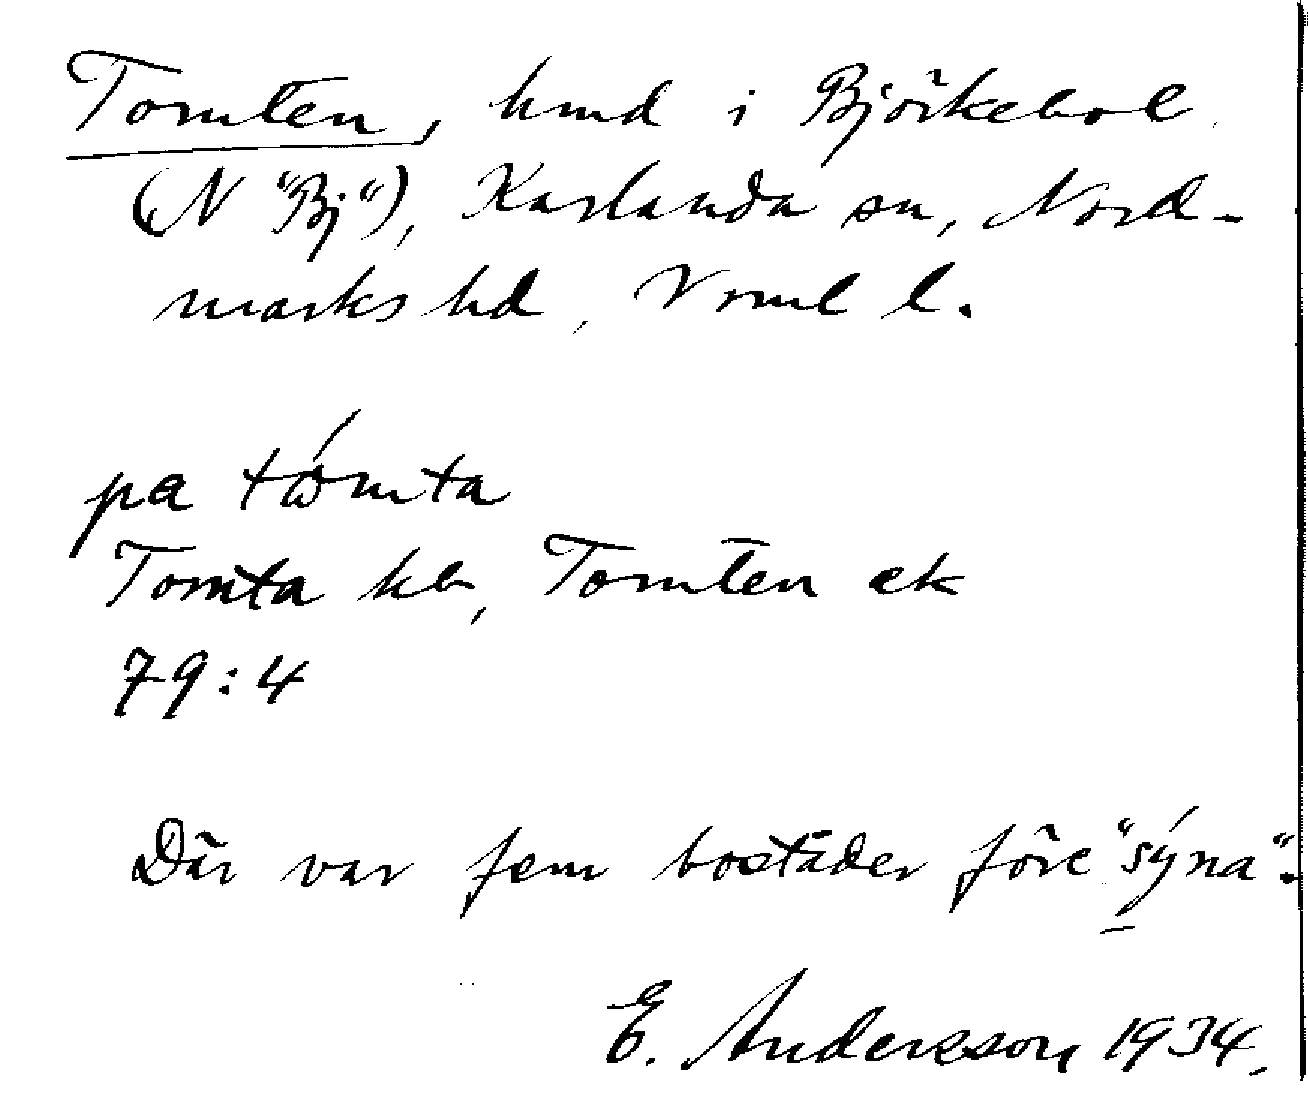 Tomten, hmd i Björkebol
(N "Bj"), Karlanda sn, Nord-
marks hd, Vrml l.
pa tómta
Tomta kb, Tomten ek
79:4
Där var fem bostäder före "sýna".
E. Andersson 1934.